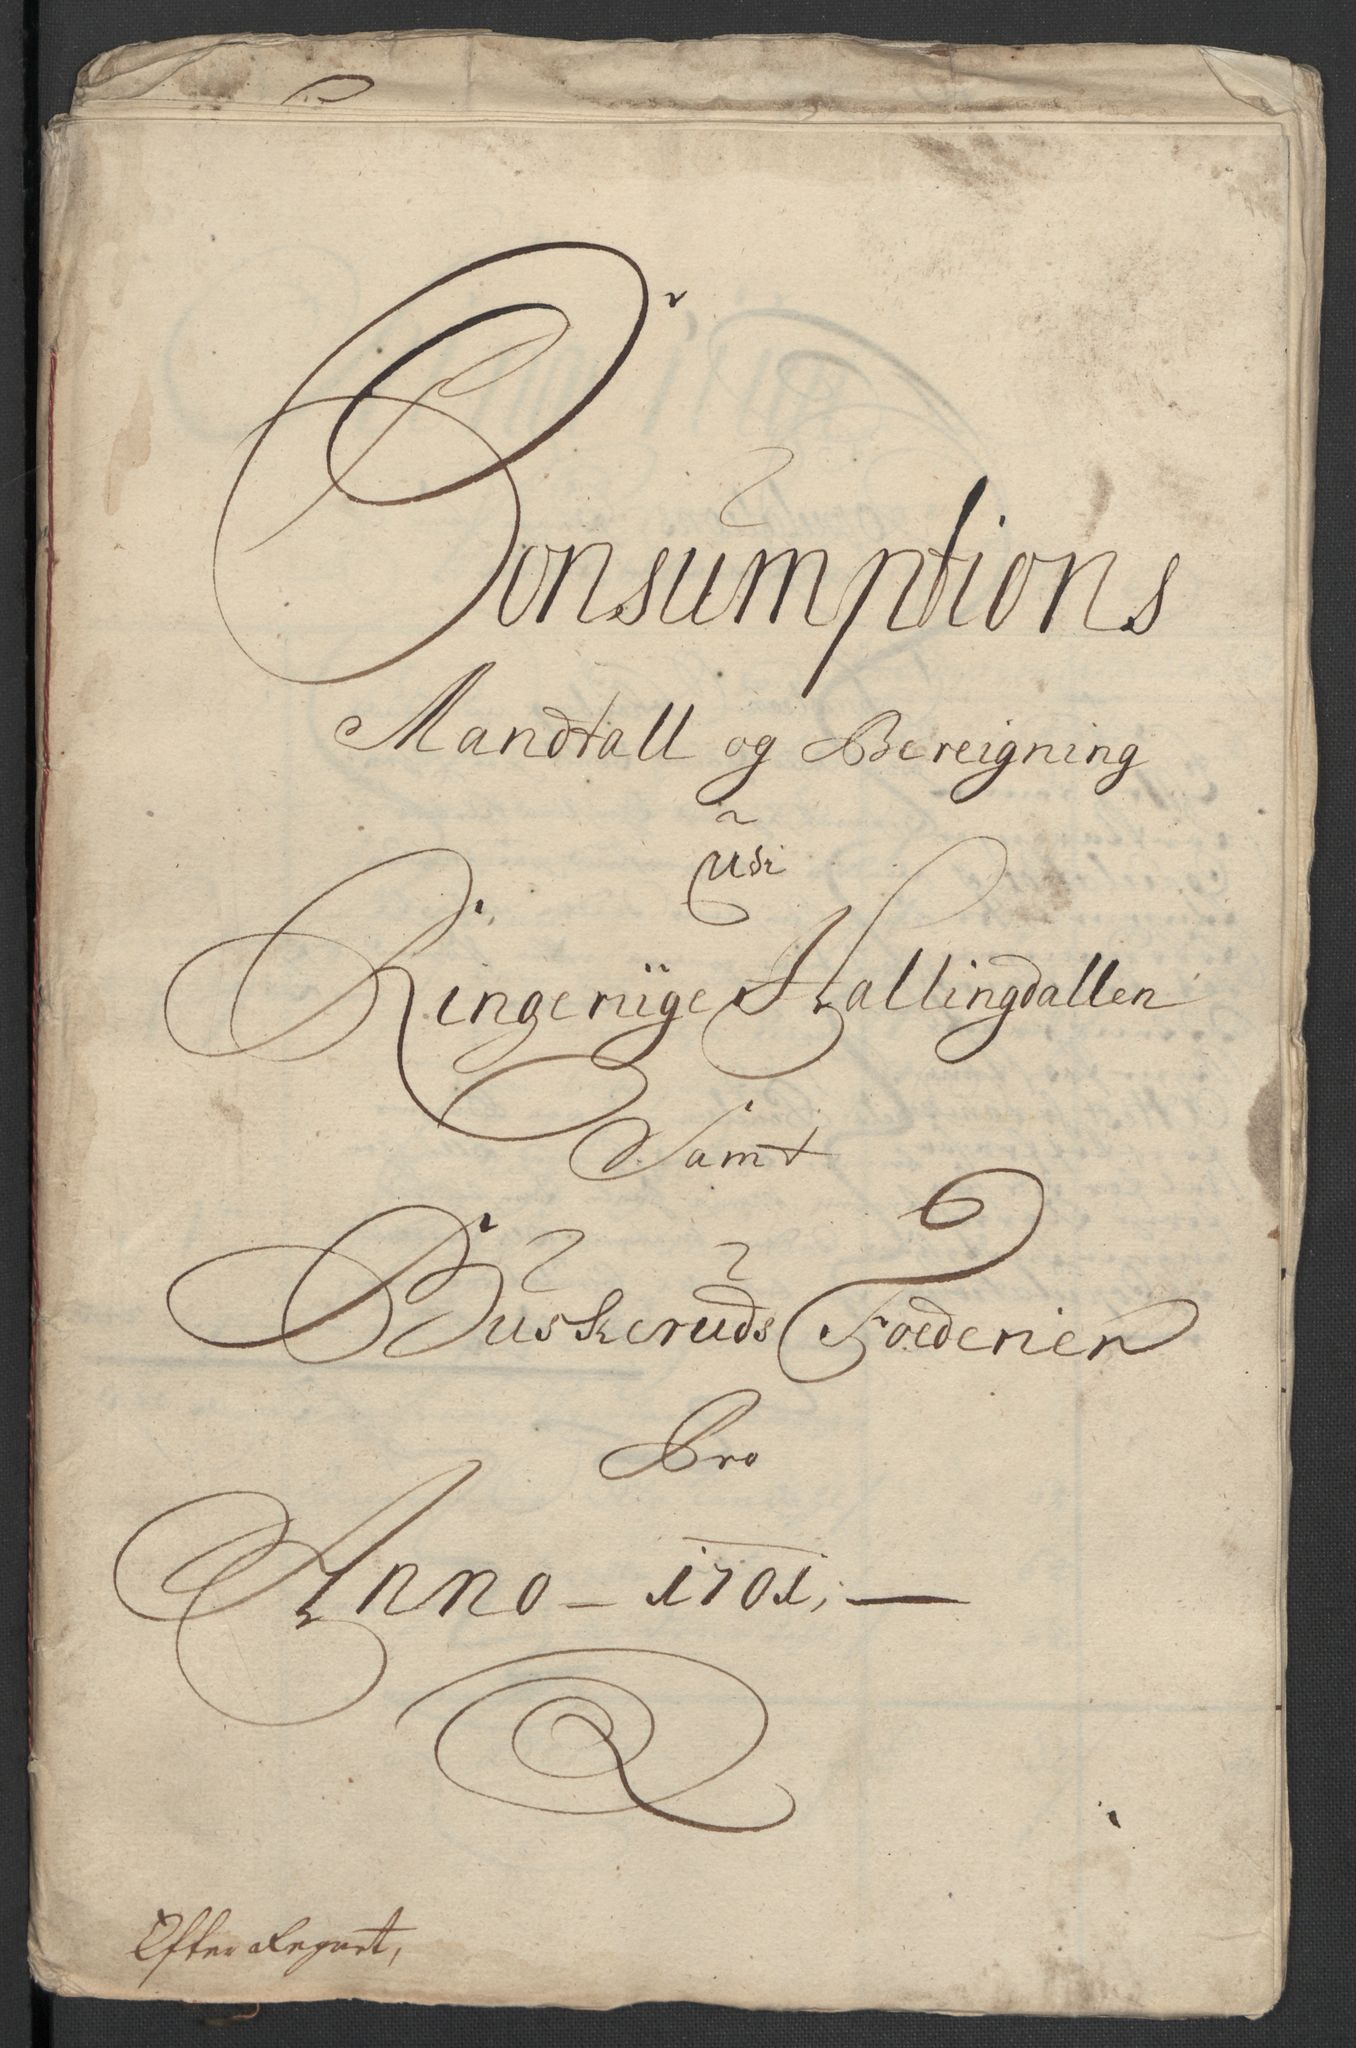 Consumptions
Mandtall og Bereigning
Udi
Ringeriige Hallingdallen
Samt
Buskeruds Foederier
Pro
Anno - 1701, -
Efter